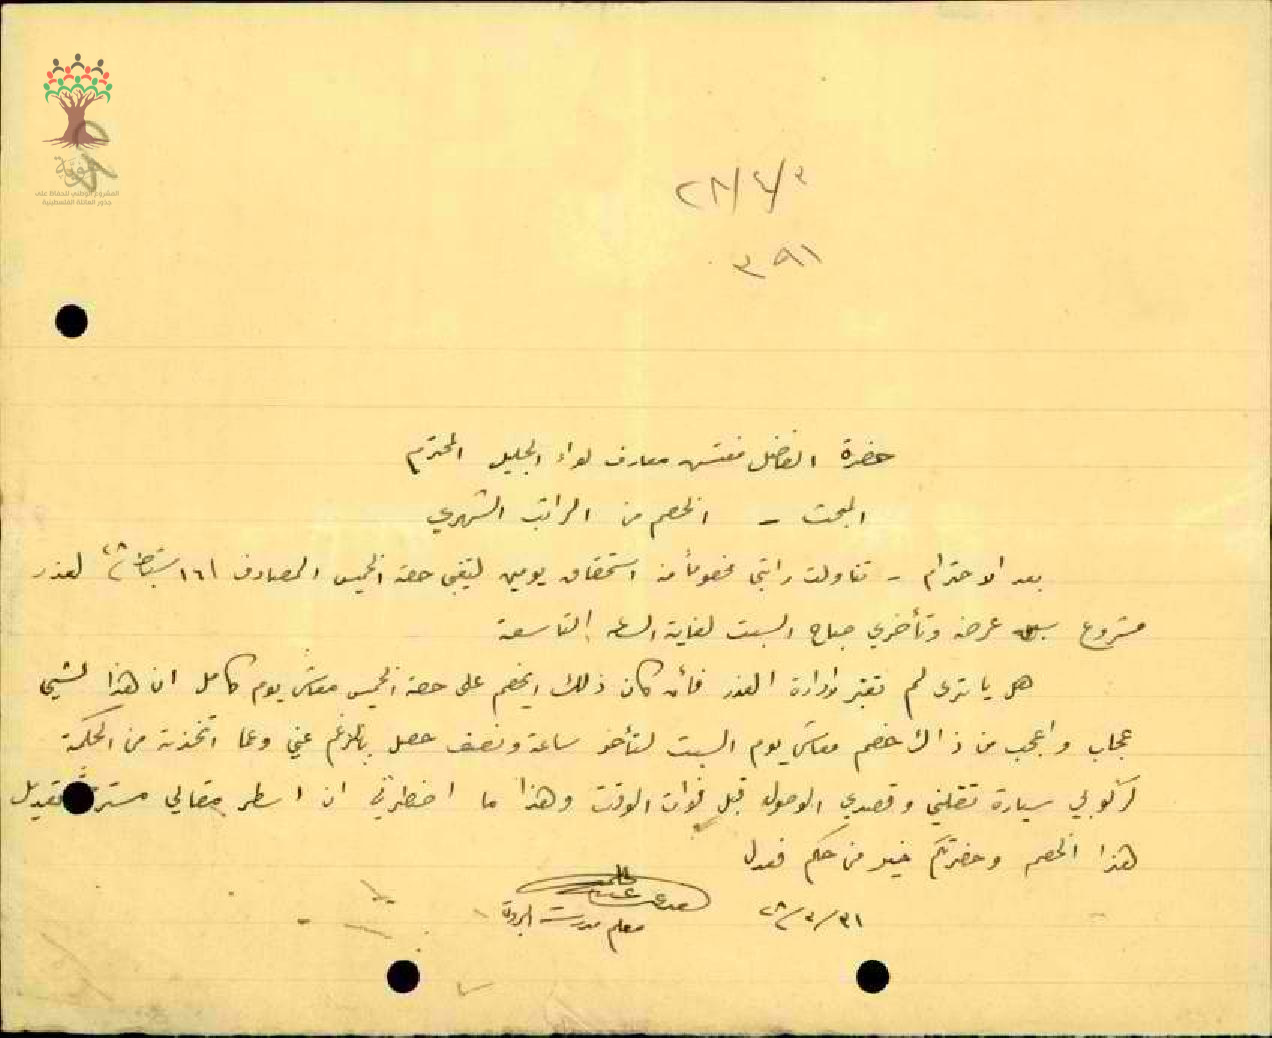 المشروع الوطني للحفاظ على
جذور العائلة الفلسطينية
٢٨/٤/٣
٣٩١
حضرة الفاضل مفتش معارف لواء الجليل المحترم
البحث - الخصم من الراتب الشهري
بعد الاحترام - تناولت راتبي مخصوماً منه استحقاق يومين ليقبي حصة الخميس المصادف ١٦ شباط ٢٨ لعذر
مشروع عرضه وتأخري صباح السبت لغاية الساعة التاسعة
هل يا ترى لم تعتبر ادارة العذر فأن كان ذلك ايخصم على حصة الخميس معاش يوم كامل ان هذا لشيء
عجاب واعجب من ذالك خصم معاش يوم السبت لتأخر ساعة ونصف حصل بالرغم عني وعما اتخذته من الحكمة
لركوبي سيارة تقلني وقصدي الوصول قبل فوات الوقت وهذا ما اضطرني ان اسطر مقالي
هذا الخصم وحضرتكم خير من حكم فعدل
٢٨/٣/٣١
معلم مدرسة البروة